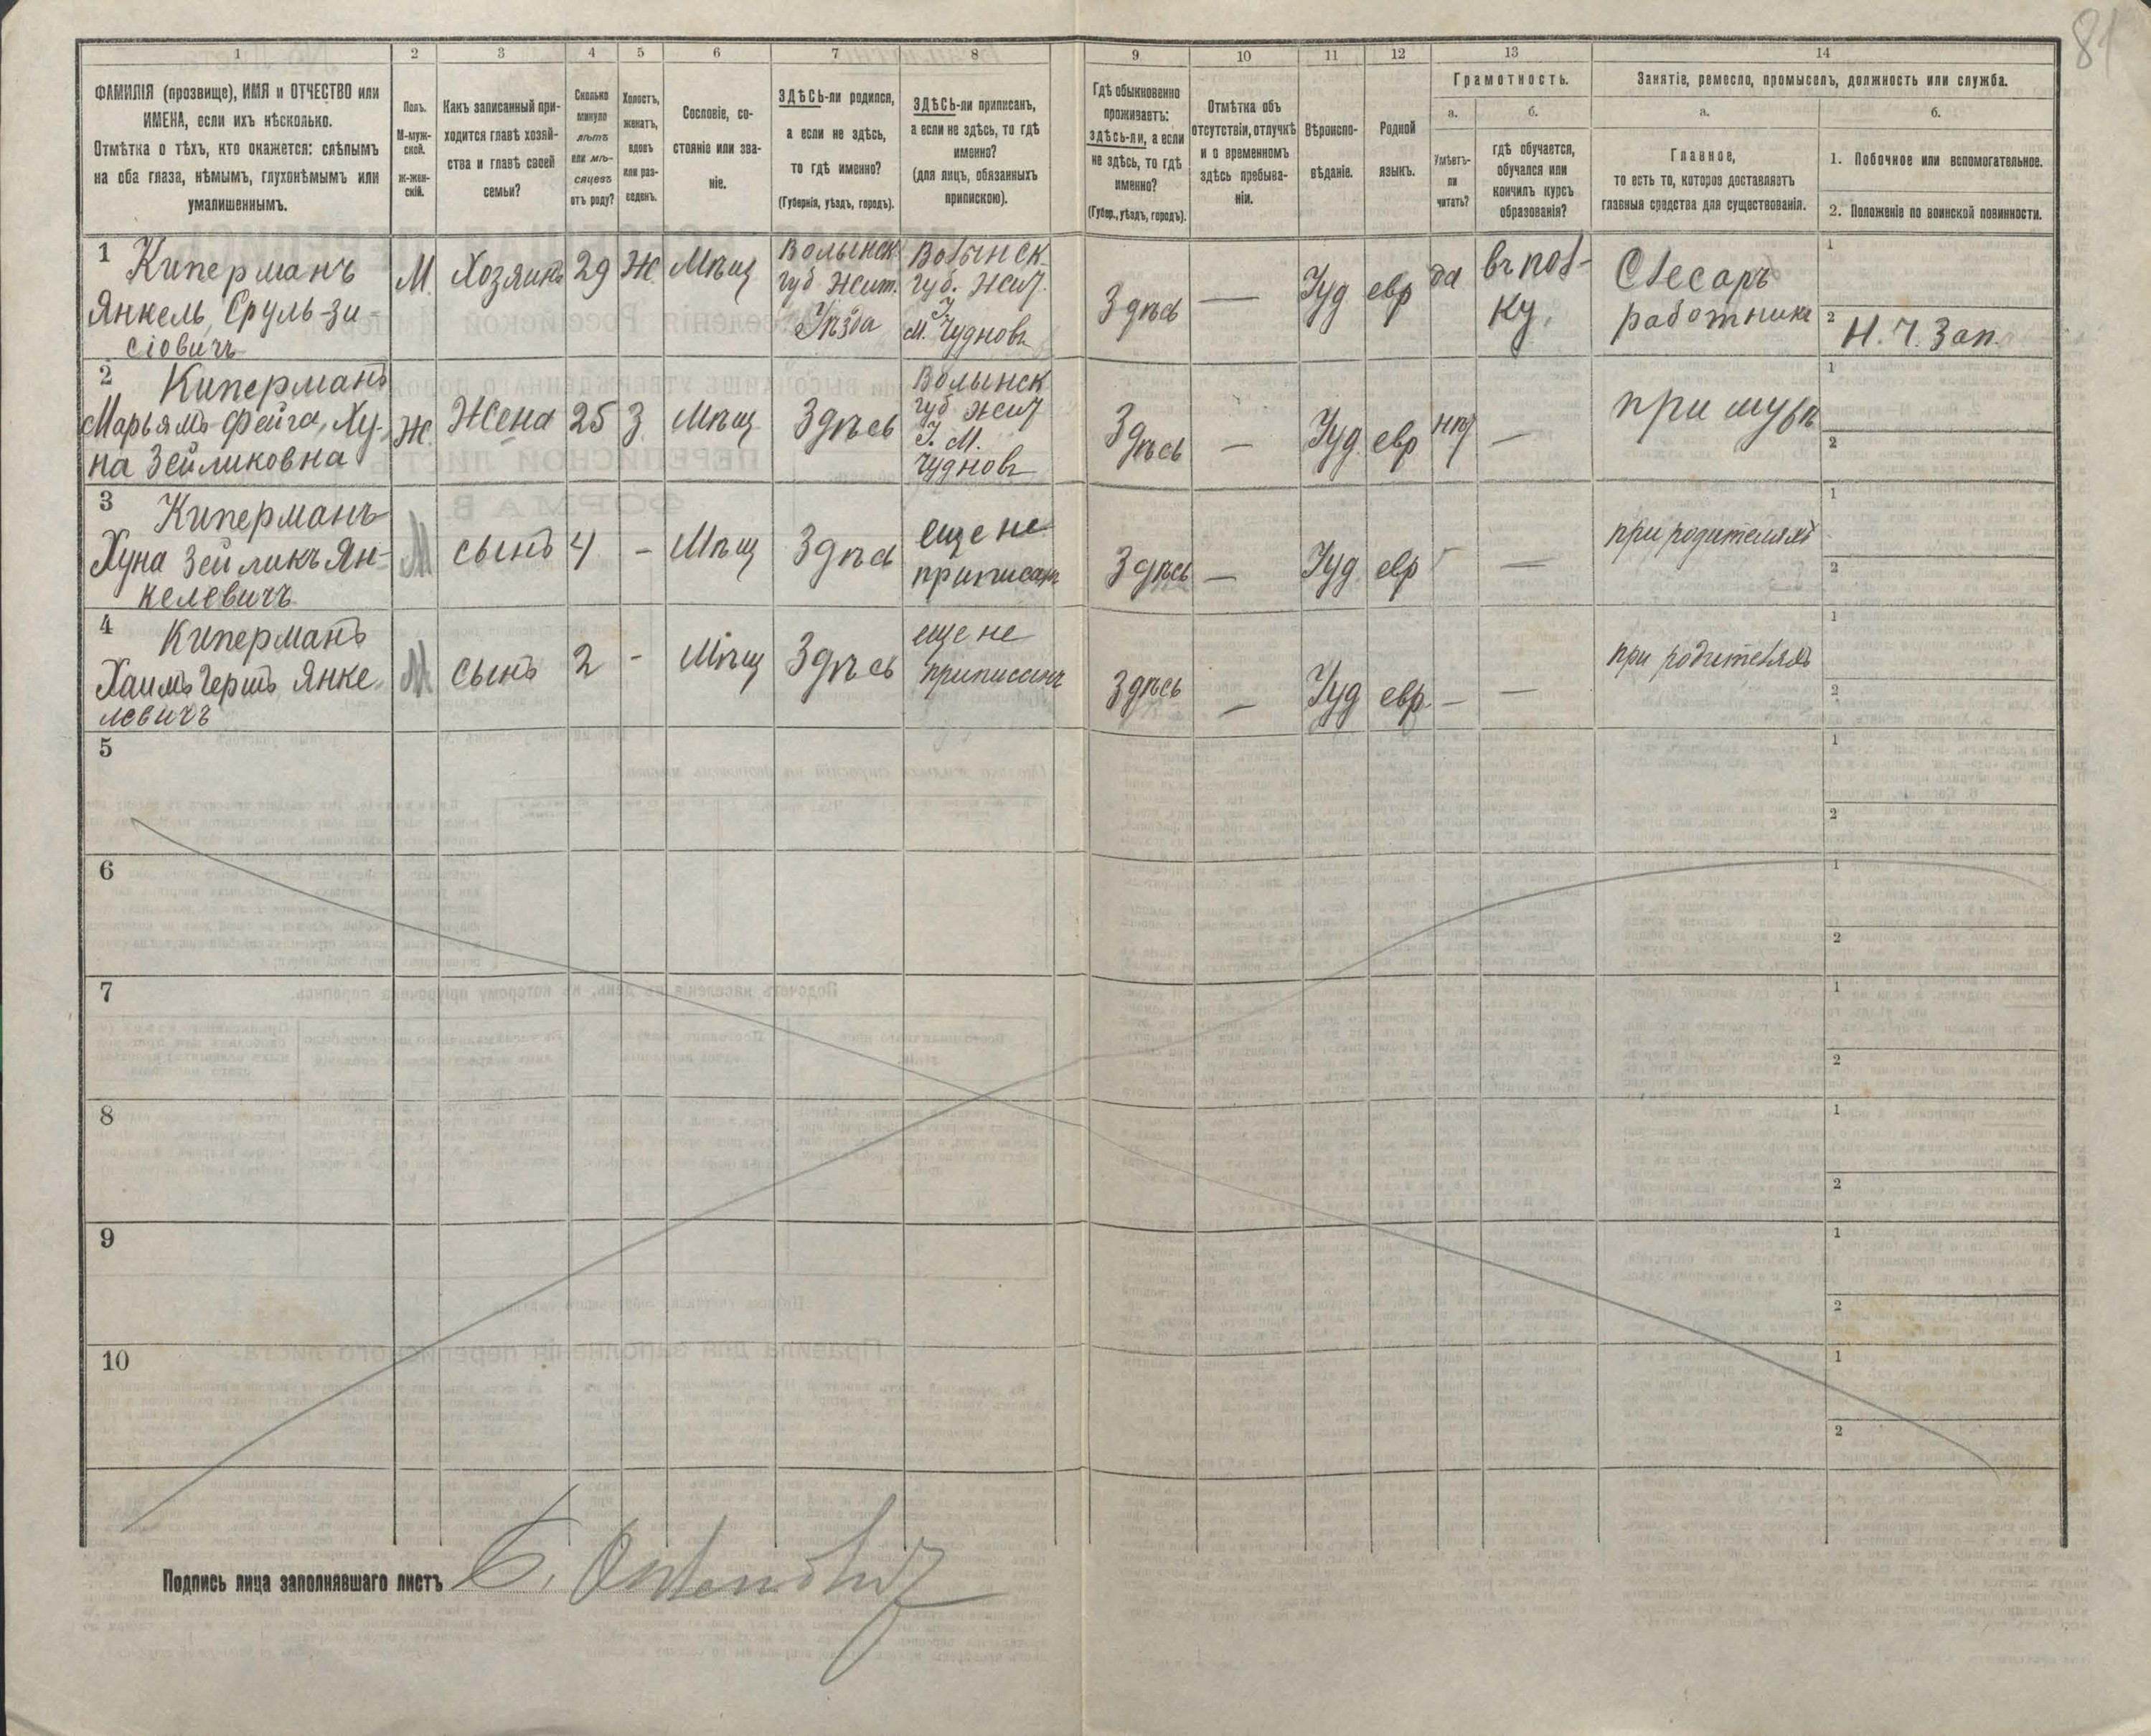 81
1
2
3
4
5
6
7
8
9
10
11
12
13
14
ФАМИЛІЯ (прозвище), ИМЯ и ОТЧЕСТВО или
ИМЕНА, если ихъ нѣсколько.
Отмѣтка о тѣхъ, кто окажется: слѣпымъ
на оба глаза, нѣмымъ, глухонѣмымъ или
умалишеннымъ.
Полъ.
М-муж-
ской.
Ж-жен-
скій.
Какъ записанный при-
ходится главѣ хозяй-
ства и главѣ своей
семьи?
Сколько
минуло
лѣтъ
или мѣ-
сяцевъ
отъ роду?
Холостъ,
женатъ,
вдовъ
или раз-
веденъ.
Сословіе, со-
стояніе или зва-
ніе.
ЗДѢСЬ-ли родился,
а если не здѣсь,
то гдѣ именно?
(Губернія, уѣздъ, городъ).
ЗДѢСЬ-ли приписанъ,
а если не здѣсь, то гдѣ
именно?
(для лицъ, обязанныхъ
припискою).
Гдѣ обыкновенно
проживаетъ:
здѣсь-ли, а если
не здѣсь, то гдѣ
именно?
(Губер., уѣздъ, городъ).
Отмѣтка объ
отсутствіи, отлучкѣ
и о временномъ
здѣсь пребыва-
ніи.
Вѣроиспо-
вѣданіе.
Родной
языкъ.
Грамотность.
а.
Умѣетъ-
ли
читать?
б.
гдѣ обучается,
обучался или
кончилъ курсъ
образованія?
Занятіе, ремесло, промыселъ, должность или служба.
а.
Главное,
то есть то, которое доставляетъ
главныя средства для существованія.
б.
1. Побочное или вспомогательное.
2. Положеніе по воинской повинности.
1 Киперманъ
Янкель, Сруль-Зи-
сіовичъ
М.
Хозяинъ
29
Ж.
Мѣщ
Волынск.
губ Жит.
Уѣзда
Волынск
губ. Жит.
У
м. Чудновъ
Здѣсь
—
Іуд
евр
да
въ пол-
ку.
Слесарь
работникъ
1
2 Н. Ч. Зап.
2 Киперманъ
Марьямъ-Фейга, Ху-
на Зейликовна
Ж.
Жена
25
З
Мѣщ
Здѣсь
Волынск
губ Жит
У. М.
Чудновъ
Здѣсь
—
Іуд.
евр
нѣт
—
при мужѣ
1
2
3 Киперманъ
Хуна Зейликъ Ян-
келевичъ
М
сынъ
4
-
Мѣщ
Здѣсь
еще не
приписанъ
Здѣсь
—
Іуд.
евр
—
при родителяхъ
1
2
4 Киперманъ
Хаимъ Гершъ Янке-
левичъ
М
сынъ
2
-
Мѣщ
Здѣсь
еще не
приписанъ
Здѣсь
—
Іуд
евр.
—
—
при родителяхъ
1
2
5
1
2
6
1
2
7
1
2
8
1
2
9
1
2
10
1
2
Подпись лица заполнявшаго листъ